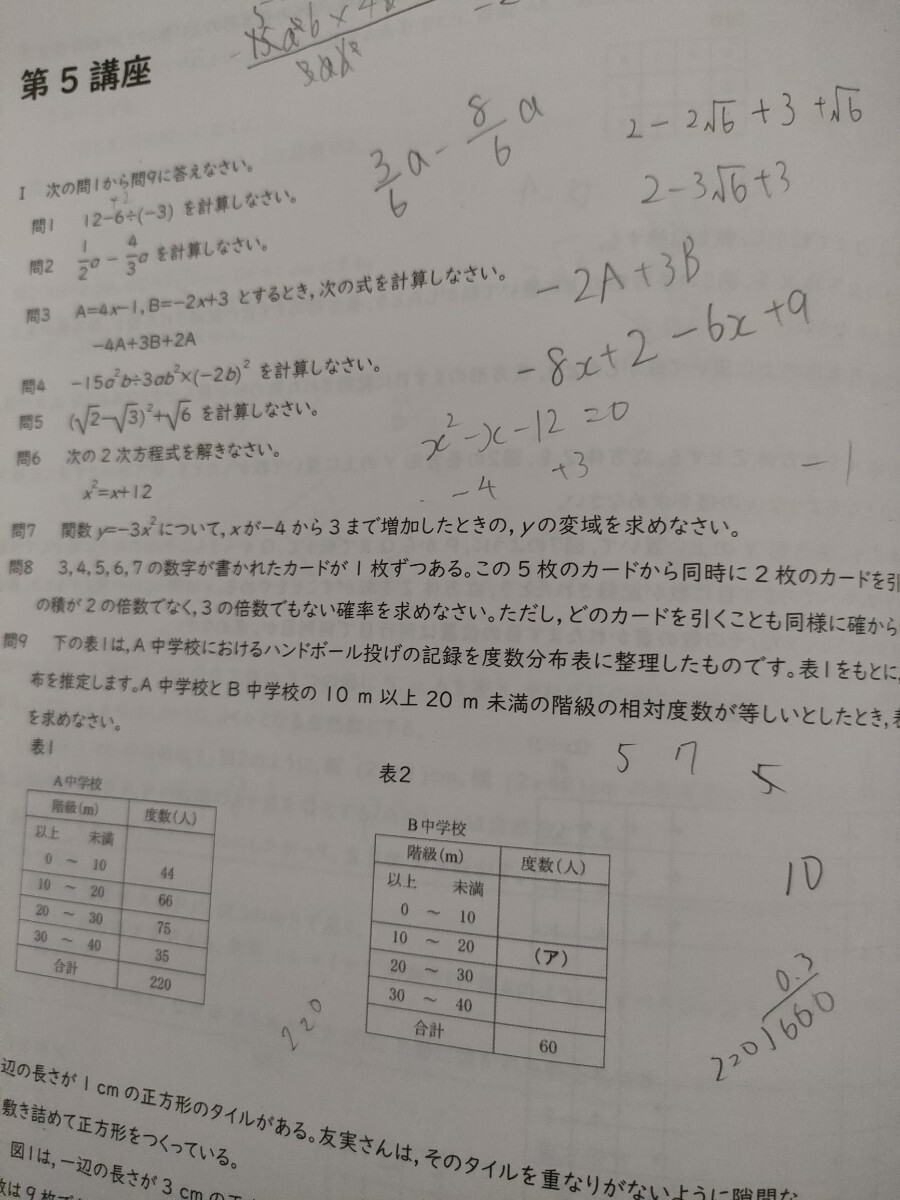 第5講座
2-2√6+3+√6
3/6a-8/6a
2-3√6+3
I 次の問1から問9に答えなさい。
+2
問1 12-6÷(-3) を計算しなさい。
問2 1/2a-4/3a を計算しなさい。
問3 A=4x-1, B=-2x+3 とするとき, 次の式を計算しなさい。
-4A+3B+2A
-2A+3B
-8x+2-6x+9
問4 -15a²b÷3ab²×(-2b)² を計算しなさい。
問5 (√2-√3)²+√6 を計算しなさい。
問6 次の2次方程式を解きなさい。
x²=x+12
x²-x-12=0
-4 +3
-1
問7 関数 y=-3x² について, xが-4から3まで増加したときの, yの変域を求めなさい。
問8 3, 4, 5, 6, 7 の数字が書かれたカードが1枚ずつある。この5枚のカードから同時に2枚のカードを引
の積が2の倍数でなく, 3の倍数でもない確率を求めなさい。ただし, どのカードを引くことも同様に確から
問9 下の表1は, A中学校におけるハンドボール投げの記録を度数分布表に整理したものです。表1をもとに,
布を推定します。A中学校とB中学校の10 m以上20 m未満の階級の相対度数が等しいとしたとき, 表
を求めなさい。
5 7
5
10
表1
A中学校
階級(m) 度数(人)
以上 未満
0 ～ 10 44
10 ～ 20 66
20 ～ 30 75
30 ～ 40 35
合計 220
表2
B中学校
階級(m) 度数(人)
以上 未満
0 ～ 10
10 ～ 20 (ア)
20 ～ 30
30 ～ 40
合計 60
220
0.3
220)660
辺の長さが1cmの正方形のタイルがある。友実さんは, そのタイルを重なりがないように隙間な
敷き詰めて正方形をつくっている。
図1は, 一辺の長さが3cmの正
数は9枚で